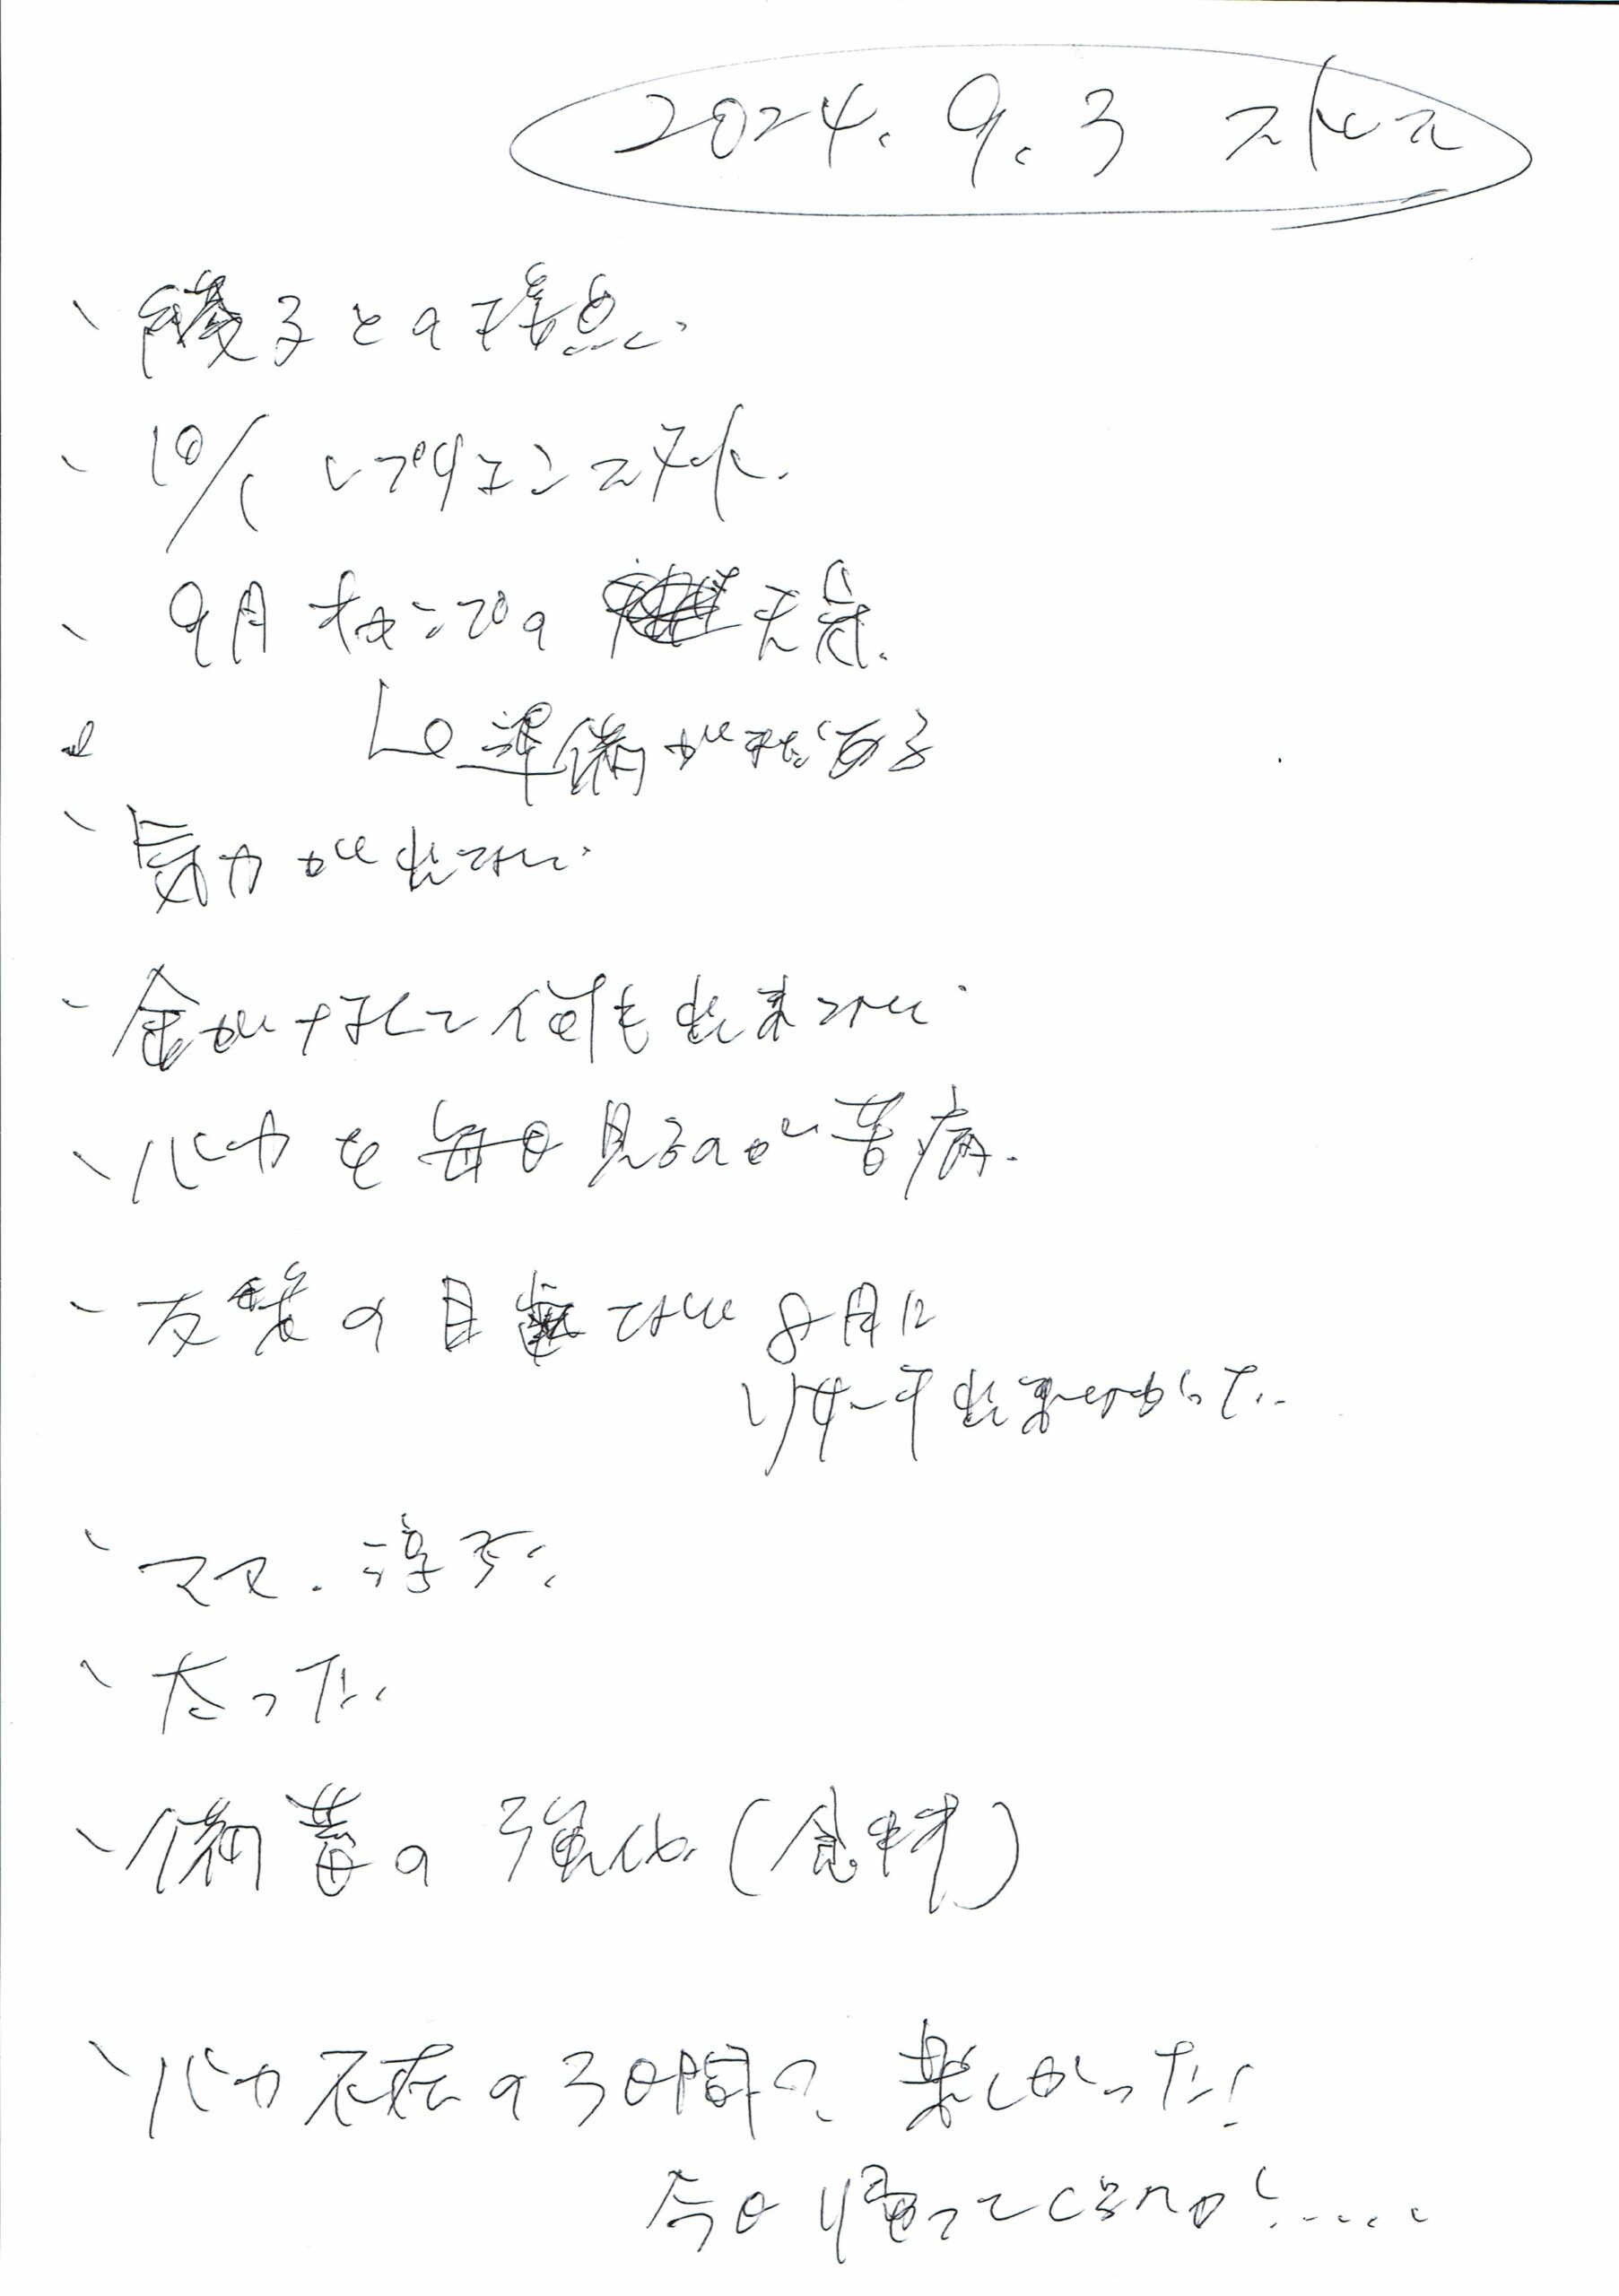 2024.9.3 ストレス
、綾子との接点.
、10/1 レプリコンスタート.
、9月オープンの 未定.
└○準備がまだある
、気力が出ない.
、金がなくて何も出来ない.
、バカを毎日見るのが苦痛.
、友葉の目 ない 8月に
リサーチ出来なかった.
、ママ. 淳子.
、太った.
、備蓄の強化(食料)
、バカ不在の3日間?楽しかった!
今日帰ってくるのか!.....